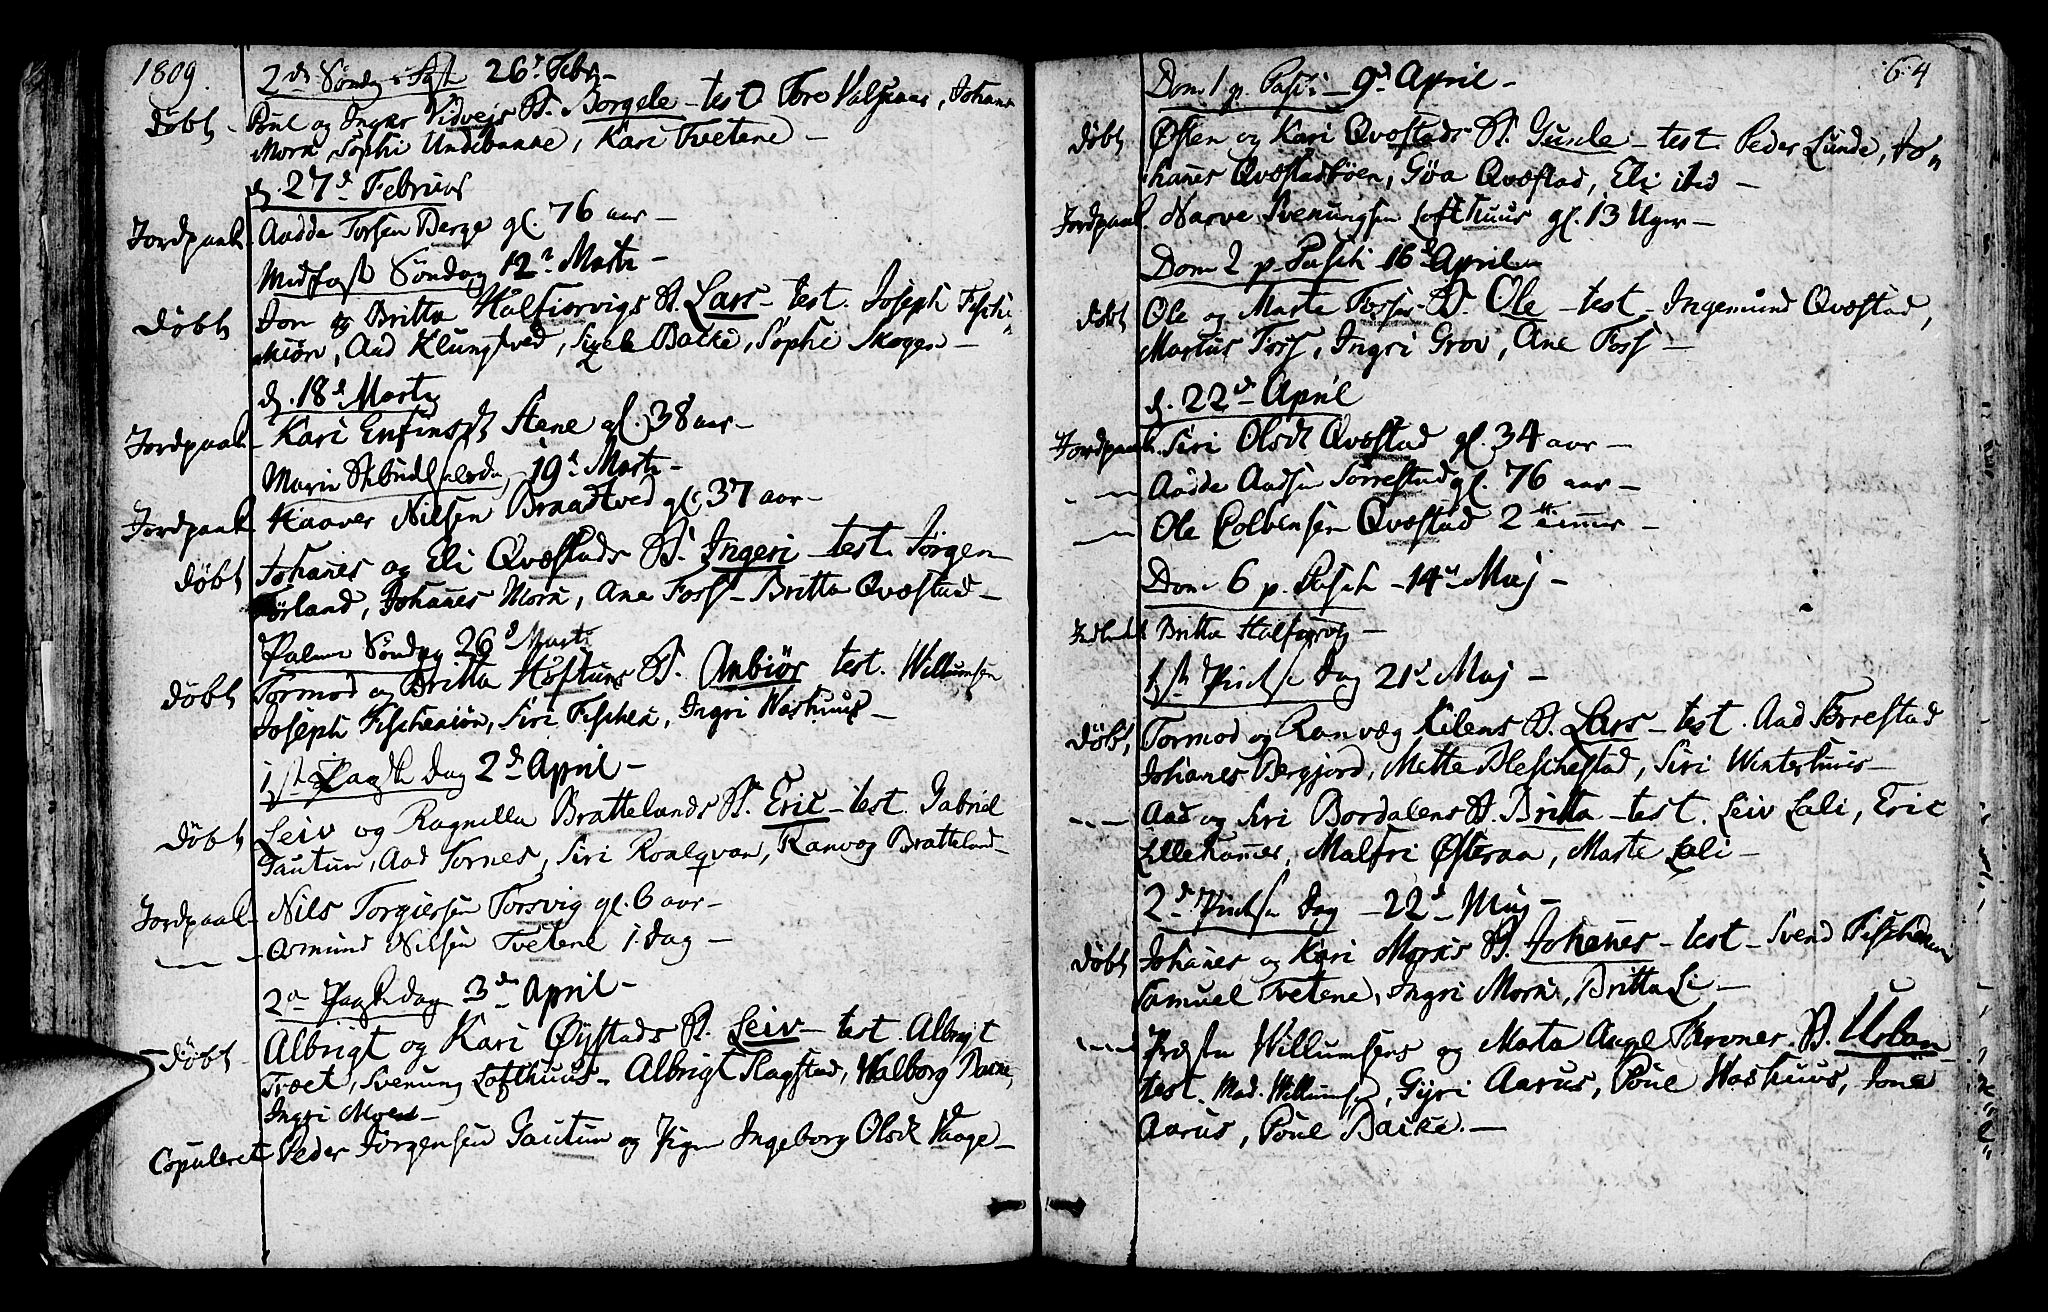 1809.
2den Søndag i Fast 26de Febr –
Døbt – Poul og Inger Vidvejs B. Borgele – test Tore Valsnaas, Johans
Morn, Sophi Undebakke, Kari Tvetene –
d. 27de Februar
Jordpaak. Aadde Torsen Berge gl. 76 aar –
Midfast Søndag 12te Marti –
Døbt Jon og Britta Halftiorvigs B. Lars – test. Joseph Fische„
miøn, Aad Klungtved, Sigele Bakke, Sophi Skogen –
d. 18de Marti
Jordpaak – Kari Enfinsdt Stene gl. 38 aar –
Mariæ 19de Marti –
Jordpaak – Haaver Nilsen Braadtved gl. 37 aar –
Døbt Johanes og Eli Qvæstads B. Ingeri – test. Jørgen
Førland, Johanes Morn, Ane Foss – Britta Qvæstad –
Palme Søndag 26de Marti
Døbt Tormod og Britta Høftuns B. Anbiør test. Willumsen
Joseph Fischemiøn, Siri Fischen, Ingri Washuus –
1ste Paaske Dag 2den April –
Døbt Leiv og Ragnilla Brattelands B. Eric – test. Gabriel
Tautun, Aad Tornes, Siri Roalqvam, Ranvog Bratteland –
Jordpaak – Nils Torgiersen Torsvig gl. 6 aar –
– – – Asmund Nilsen Tvetene 1 dag –
2den Paaskedag 3den April –
Døbt Albrigt og Kari Øystads B. Leiv – test. Albrigt
Træet, Svenung Lofthuus – Albrigt Slagstad, Walborg Bakke,
Ingri Moen –
Copuleret Peder Jørgensen Tautun og Pige Ingeborg Olsdt Haage –
64
Dom 1 p. Pasc: – 9de April –
Døbt Østen og Kari Qvæstads B. Gunle – test. Peder Lunde, Jo„
hanes Qvæstadbøen, Gøa Qvæstad, Eli ibid –
Jordpaak. Narve Svenungsen Lofthuus gl. 13 Uger –
Dom 2 p. Pasch 16de April –
Døbt Ole og Marte Fosses B. Ole – test – Ingemund Qvæstad,
Martus Foss, Ingri Grov, Ane Foss –
d. 22de April
Jordpaak. Siri Olsdt Qvæstad gl. 34 aar –
– – Aadde Aadsen Torrestad gl. 76 aar –
– – Ole Colbensen Qvæstad 2 timer –
Dom 6 p. Pasch – 14de Maj –
Indledet Britta Halftiorvig –
1ste Pindse Dag 21de Maj –
Døbt Tormod og Ranvæg Kilens B. Lars – test. Aad Torrestad
Johanes Bergjord, Mette Bleschestad, Siri Winterhuus –
– – – Aad og Siri Bordalens B. Britta – test. Leiv Lali, Eric
Lillehammer, Malfri Østeraa, Marte Lali –
2den Pindse Dag – 22de Maj –
Døbt Johanes og Kari Morns B. Johanes – test – Svend Fischemiøn
Samuel Tvetene, Ingri Morn, Britta Li –
– – – Præsten Willumsens og Marta Angel Krones B. Urban
test. Mad. Willumsen, Gyri Aarus, Poul Washuus, Jone
Aarus, Poul Bakke. –